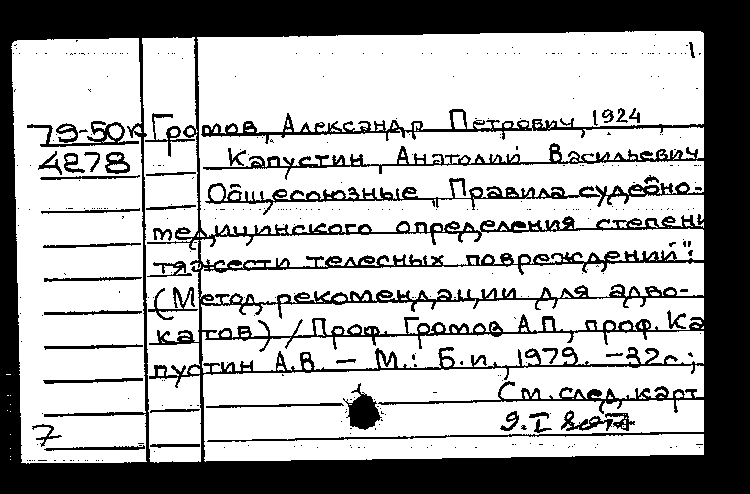 1.
79-50к Громов, Александр Петрович, 1924
4278 Капустин, Анатолий Васильевич
Общесоюзные „Правила судебно-
медицинского определения степени
тяжести телесных повреждений":
(Метод. рекомендации для адво-
катов) / Проф. Громов А.П., проф. Ка
пустин А.В. — М.: Б.и., 1979. — 32с.;
См. след. карт
9.I
7